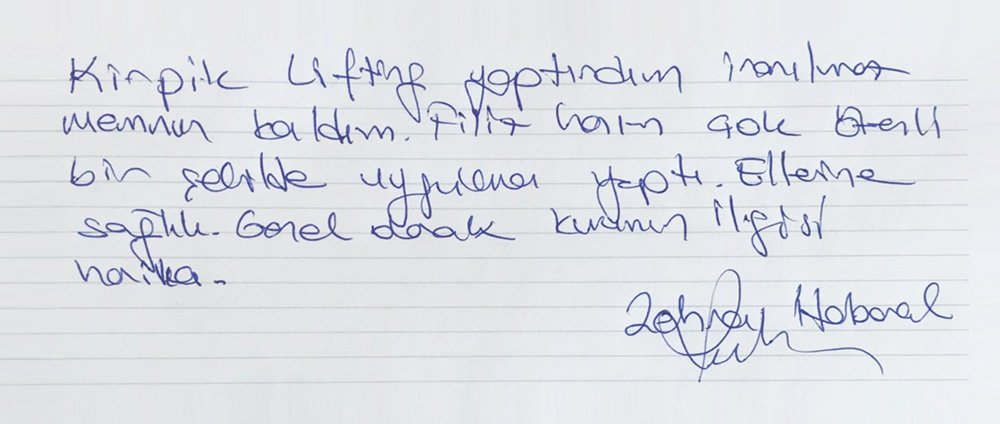 Kirpik Lifting yaptırdım inanılmaz
memnun kaldım. Filiz hanım çok özenli
bir şekilde uygulama yaptı. Ellerine
sağlık. Genel olarak kurumun ilgisi
harika.
Haboral